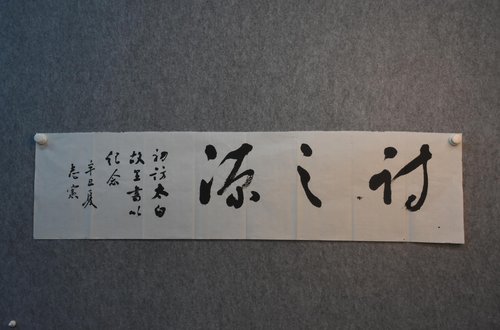 诗之源
初访太白
故里书以
纪念
辛丑夏
志宪